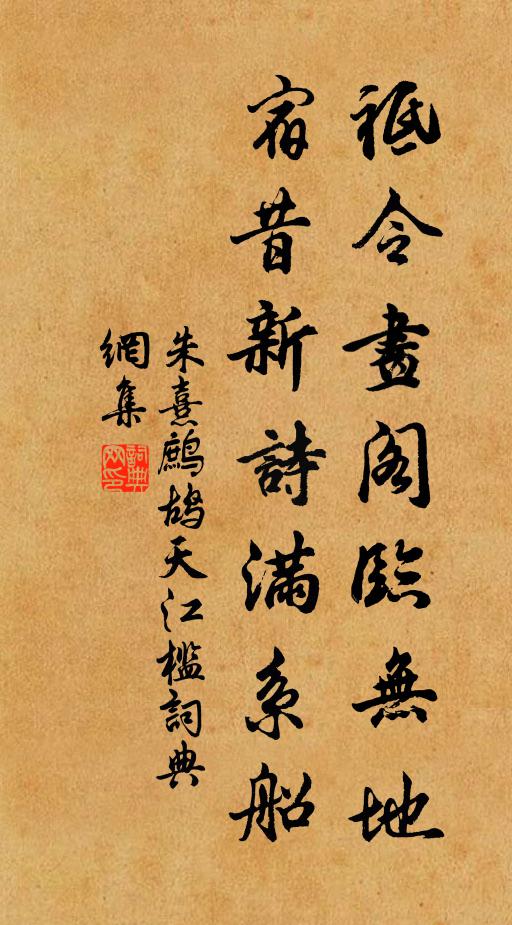 祗令畫閣臨無地
宿昔新詩滿系船
朱熹鷓鴣天江檻詞典
網集
詞典網印